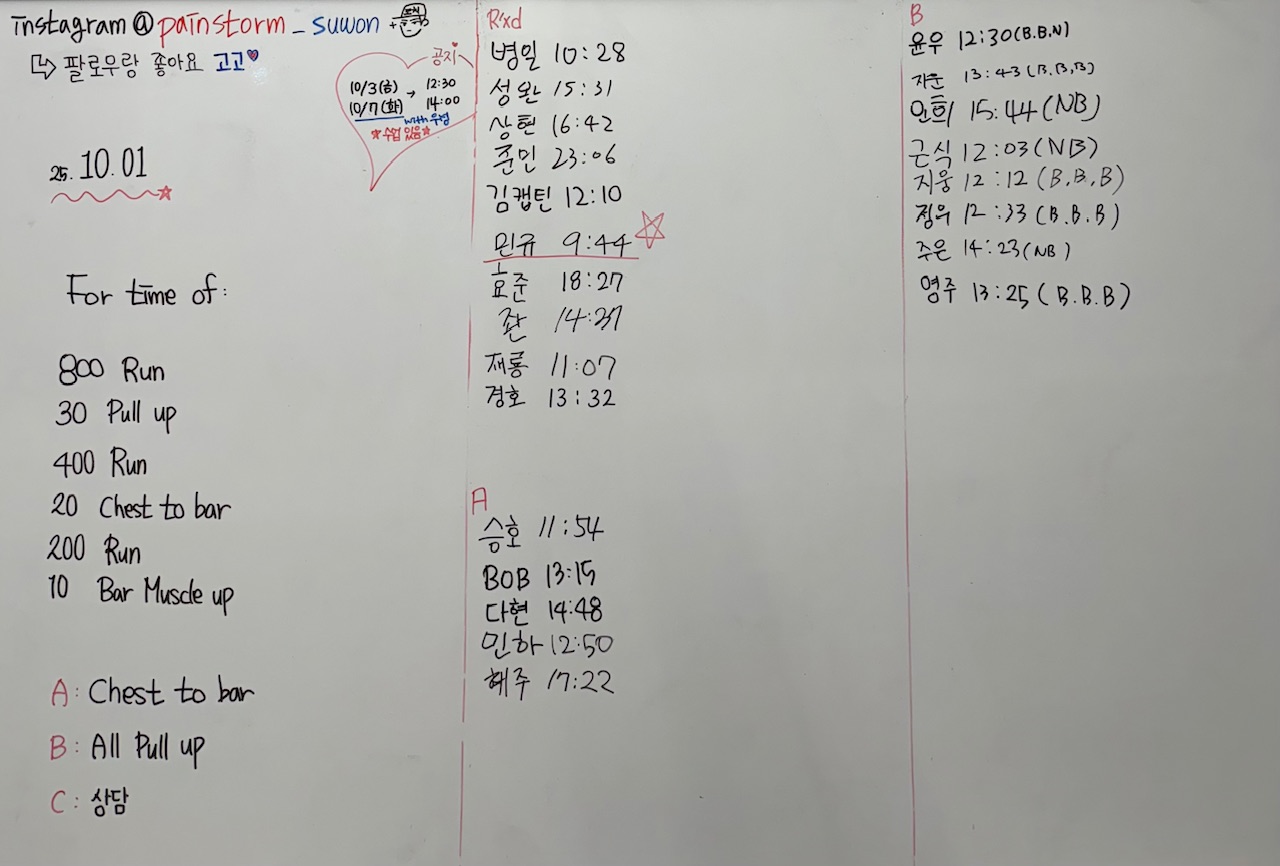 instagram @ painstorm _ suwon +
↳ 팔로우랑 좋아요 고고♥
공지
10/3(금) → 12:30
10/7(화) 14:00
with 우영
☆수업 있음☆
25. 10.01
For time of:
800 Run
30 Pull up
400 Run
20 Chest to bar
200 Run
10 Bar Muscle up
A: Chest to bar
B: All Pull up
C: 상담
R'xd
병일 10:28
성완 15:31
상현 16:42
준민 23:06
김캡틴 12:10
민규 9:44
효준 18:27
좐 14:37
재룡 11:07
경호 13:32
A
승호 11:54
BOB 13:15
다현 14:48
민하 12:50
해주 17:22
B
윤우 12:30(B.B.N)
13:43(B.B.B)
안희 15:44(NB)
근식 12:03(NB)
지웅 12:12(B.B.B)
정우 12:33(B.B.B)
주은 14:23(NB)
영주 13:25(B.B.B)